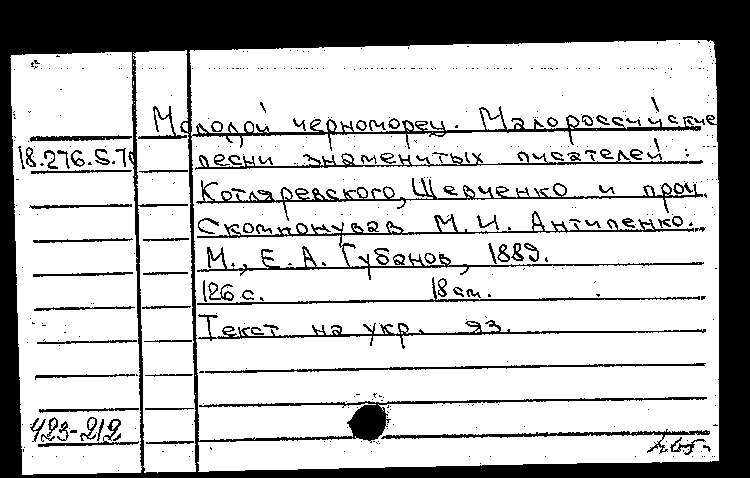 Молодой черноморец. Малороссийские
18.276.5.70 песни знаменитых писателей:
Котляревского, Шевченко и проч.
Скомпонував М. И. Антипенко.
М., Е. А. Губанов, 1889.
126 с. 18 см.
Текст на укр. яз.
423-212